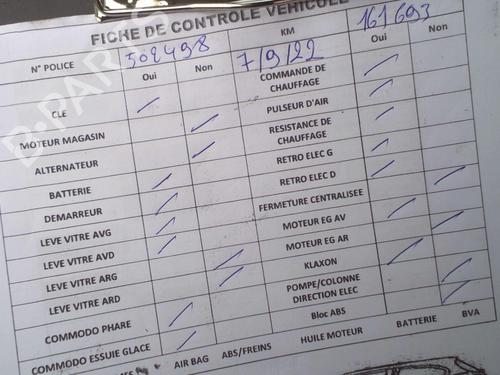 FICHE DE CONTROLE VEHICULE
N° POLICE 302498 KM 161 693
Oui Non 7/9/22 Oui Non
CLE COMMANDE DE CHAUFFAGE
MOTEUR MAGASIN PULSEUR D'AIR
ALTERNATEUR RESISTANCE DE CHAUFFAGE
BATTERIE RETRO ELEC G
DEMARREUR RETRO ELEC D
LEVE VITRE AVG FERMETURE CENTRALISEE
LEVE VITRE AVD MOTEUR EG AV
LEVE VITRE ARG MOTEUR EG AR
LEVE VITRE ARD KLAXON
COMMODO PHARE POMPE/COLONNE DIRECTION ELEC
COMMODO ESSUIE GLACE Bloc ABS
AIR BAG ABS/FREINS HUILE MOTEUR BATTERIE BVA